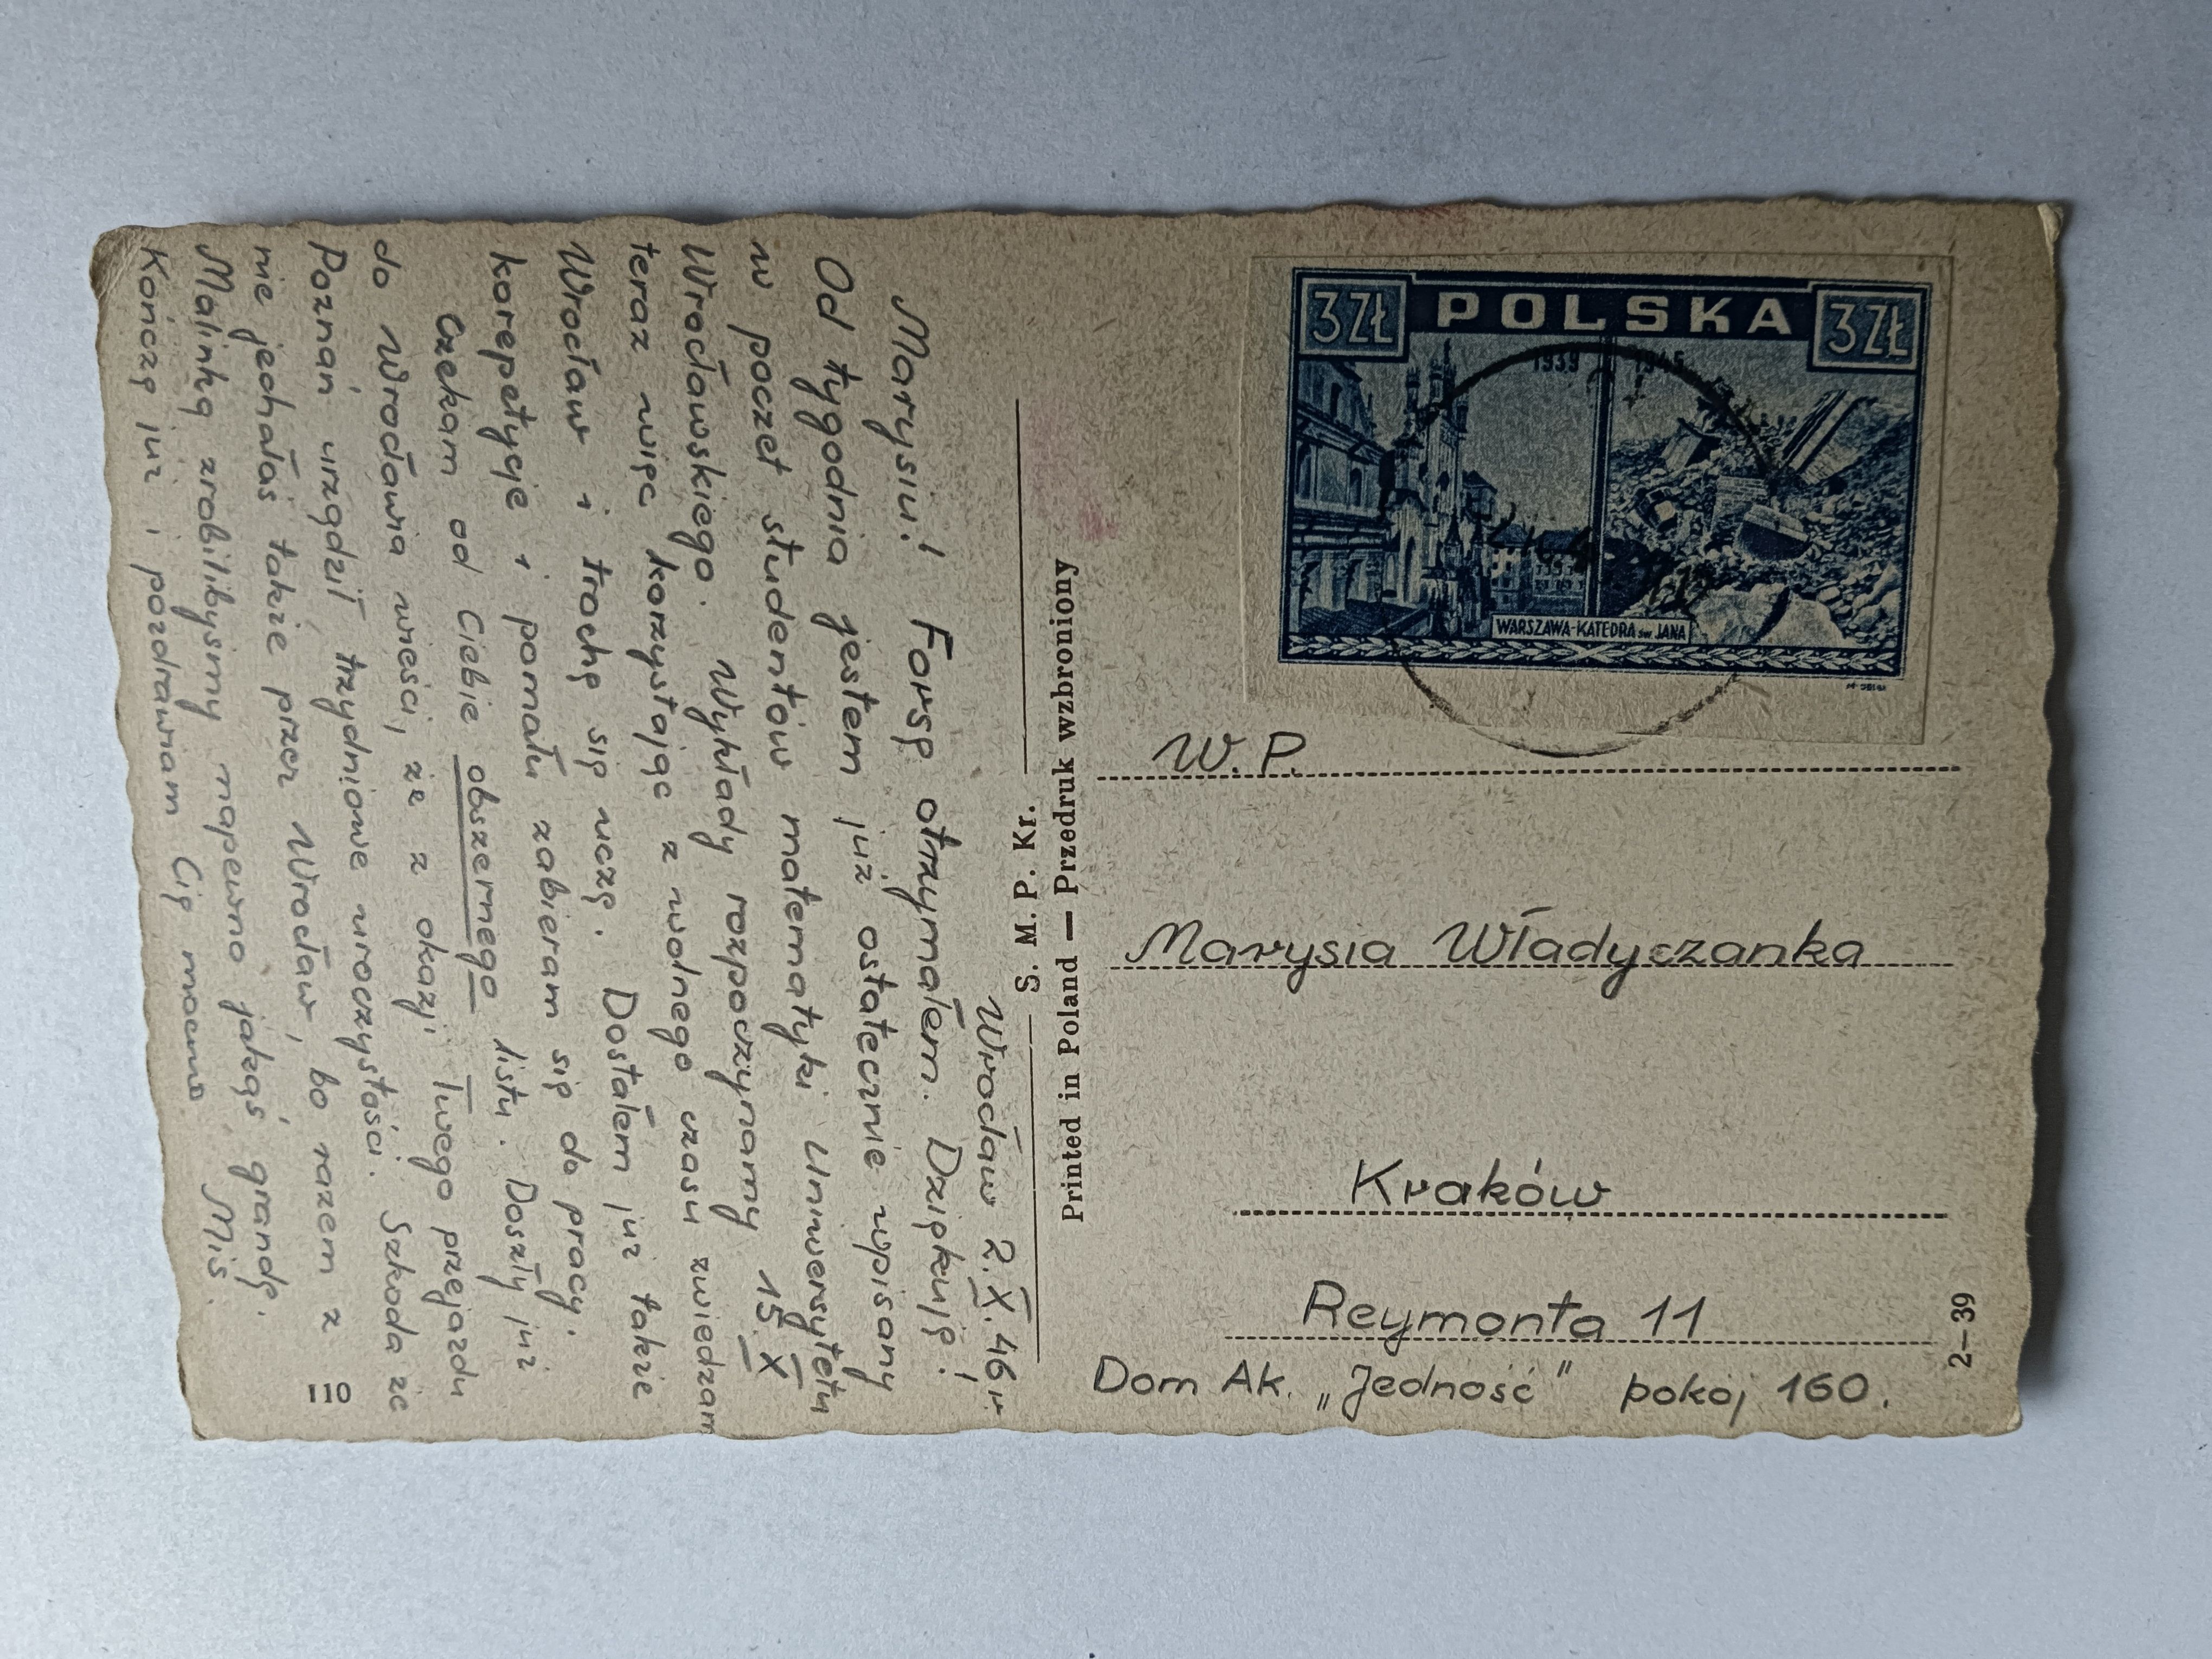 Wrocław 2.X.46 r.
Marysiu! Forsę otrzymałem. Dziękuję!
Od tygodnia jestem już ostatecznie wpisany
w poczet studentów matematyki Uniwersytetu
Wrocławskiego. Wykłady rozpoczynamy 15.X
teraz więc korzystając z wolnego czasu zwiedzam
Wrocław i trochę się uczę. Dostałem już także
korepetycje i pomału zabieram się do pracy.
Czekam od Ciebie obszernego listu. Doszły już
do Wrocławia wieści, że z okazji Twego przejazdu
Poznań urządził trzydniowe uroczystości. Szkoda że
nie jechałaś także przez Wrocław, bo razem z
Malinką zrobilibyśmy napewno jakąś grandę.
Kończę już i pozdrawiam Cię mocno. Miś.
110
S. M. P. Kr.
Printed in Poland — Przedruk wzbroniony
3 ZŁ POLSKA 3 ZŁ
1939 1945
WARSZAWA-KATEDRA św. JANA
W. P.
Marysia Władyczanka
Kraków
Reymonta 11
Dom Ak. „Jedność" pokój 160.
2—39